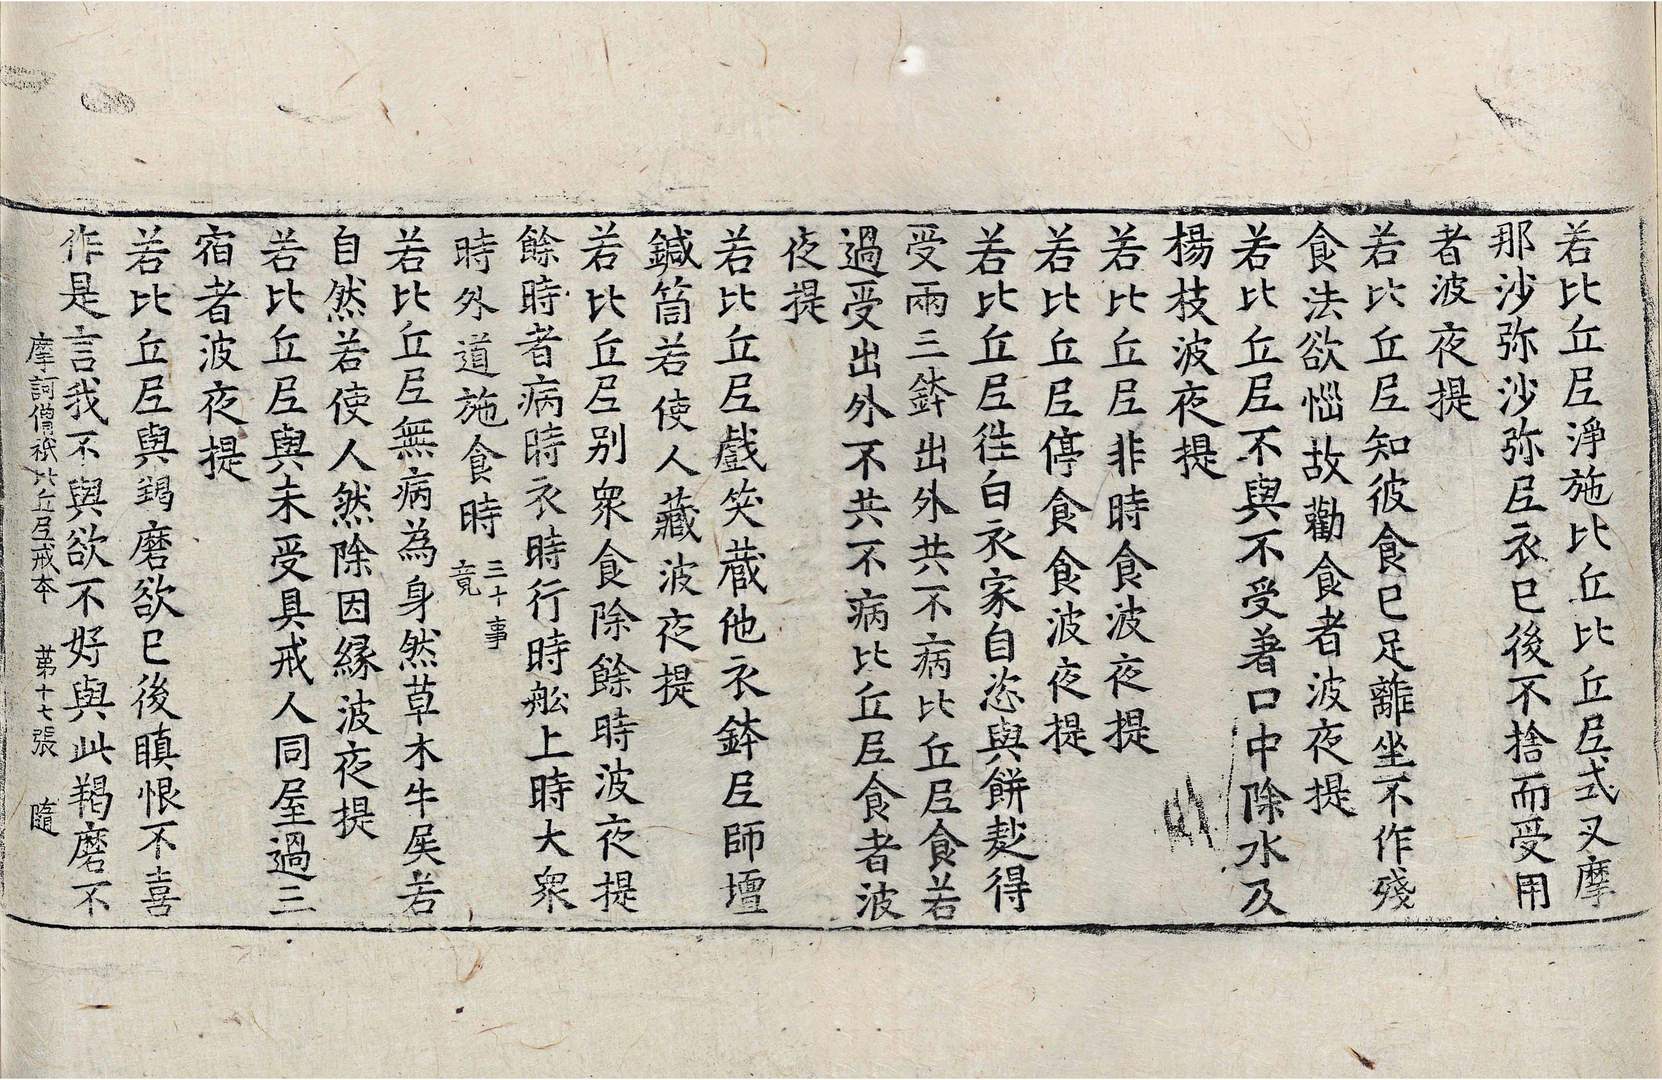 若比丘尼淨施比丘比丘尼式叉摩
那沙弥沙弥尼衣已後不捨而受用
者波夜提
若比丘尼知彼食已足離坐不作殘
食法欲惱故勸食者波夜提
若比丘尼不與不受著口中除水及
楊枝波夜提
若比丘尼非時食波夜提
若比丘尼停食食波夜提
若比丘尼往白衣家自恣與餅麨得
受兩三鉢出外共不病比丘尼食若
過受出外不共不病比丘尼食者波
夜提
若比丘尼戲笑藏他衣鉢尼師壇
鍼筒若使人藏波夜提
若比丘尼别衆食除餘時波夜提
餘時者病時衣時行時舩上時大衆
時外道施食時 三十事竟
若比丘尼無病為身然草木牛屎若
自然若使人然除因縁波夜提
若比丘尼與未受具戒人同屋過三
宿者波夜提
若比丘尼與羯磨欲已後瞋恨不喜
作是言我不與欲不好與此羯磨不
摩訶僧祇比丘尼戒本 第十七張 隨